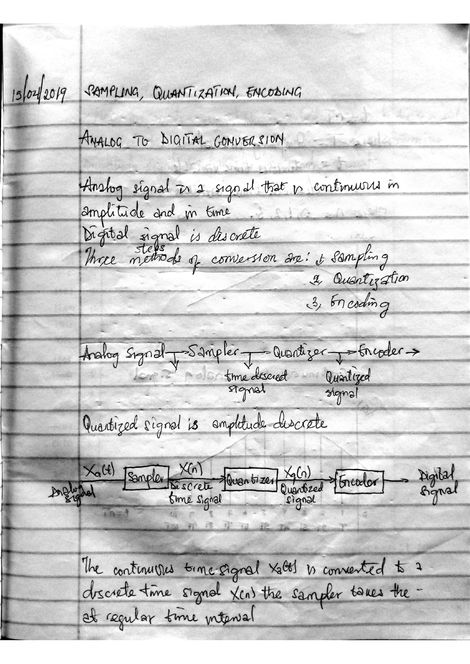 15/04/2019 SAMPLING, QUANTIZATION, ENCODING
ANALOG TO DIGITAL CONVERSION
Analog signal is a signal that is continuous in
amplitude and in time
Digital signal is discrete
steps
Three methods of conversion are: 1, Sampling
2, Quantization
3, Encoding
Analog Signal → Sampler → Quantizer → Encoder →
time discret signal
Quantized signal
Quantized signal is amplitude discrete
Xa(t) Sampler X(n) Quantizer Xq(n) Encoder Digital
Analog Signal Discrete time signal Quantized signal Signal
The continuous time signal Xa(t) is converted to a
discrete time signal X(n) the sampler takes the -
at regular time interval